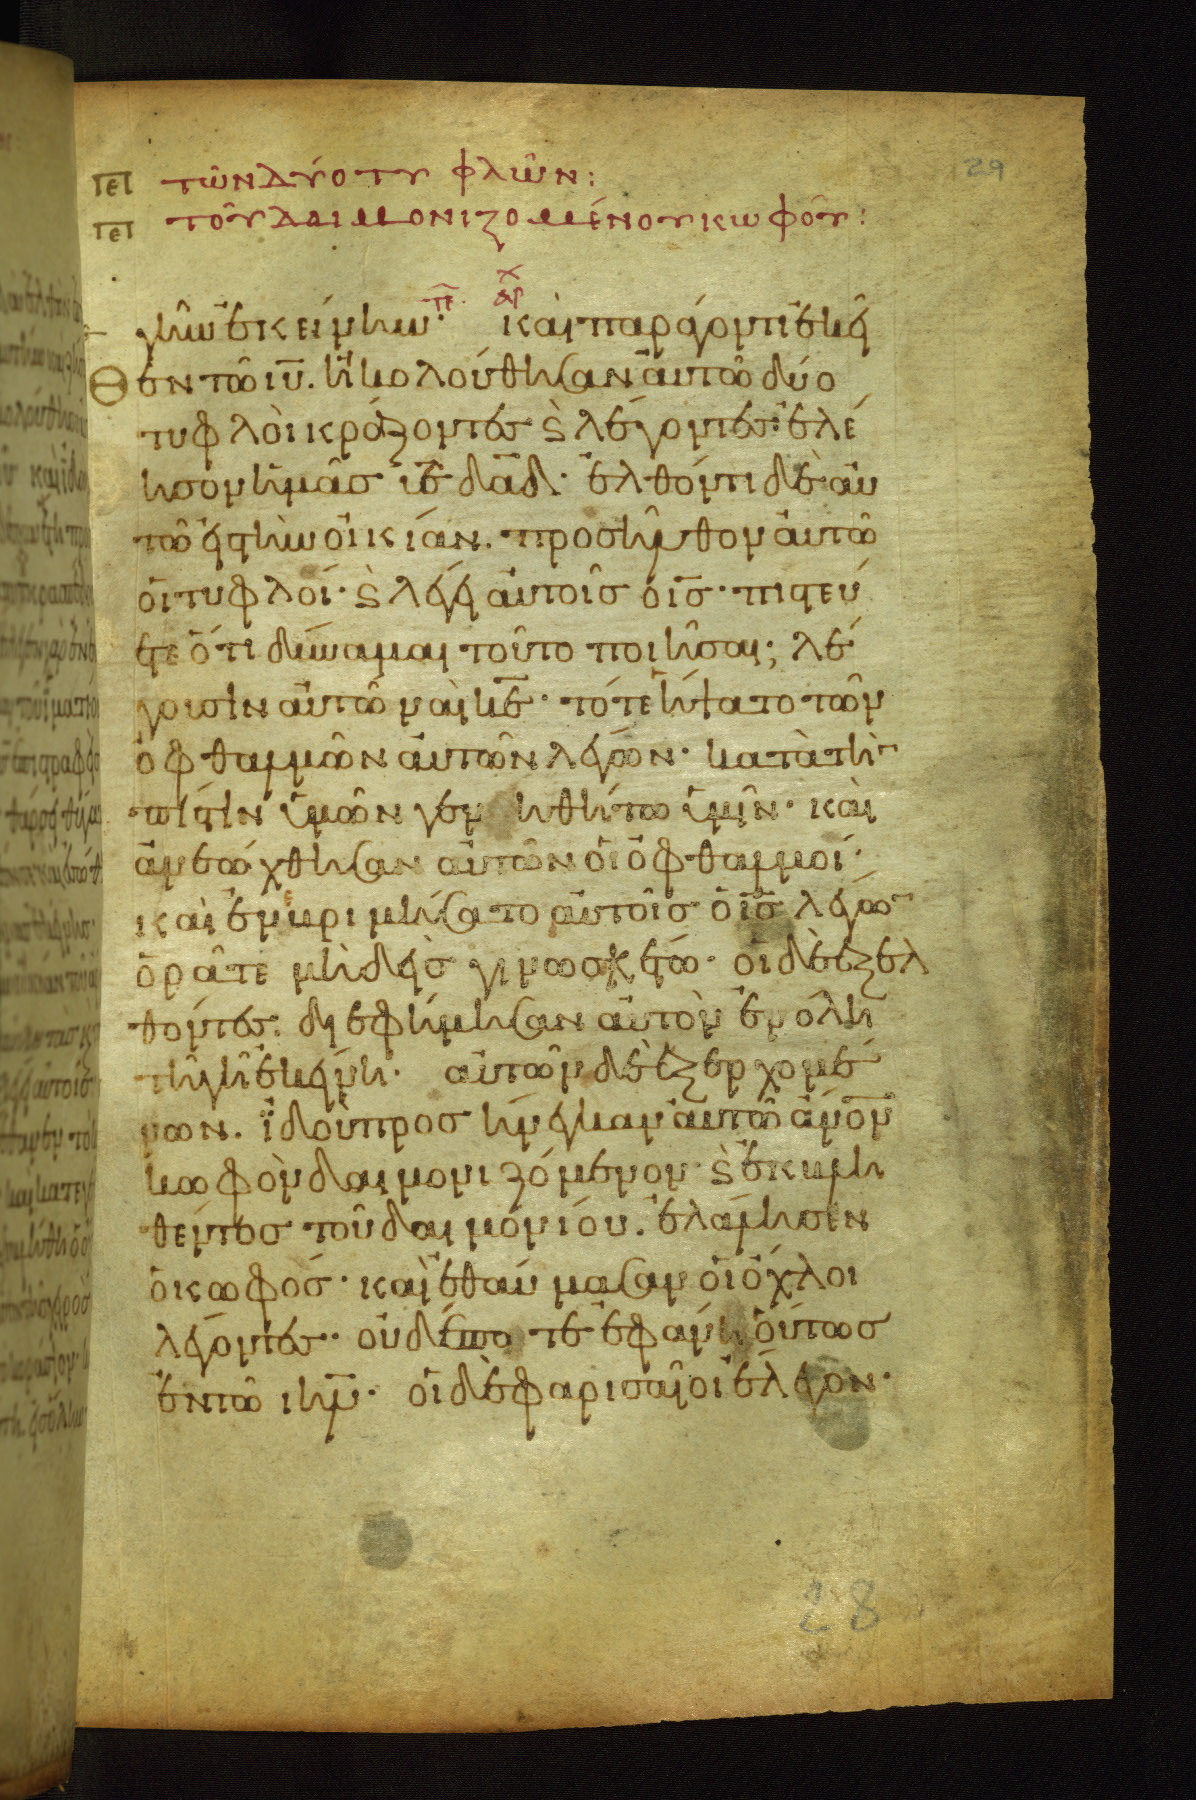 περὶ τῶν δύο τυφλῶν:
περὶ τοῦ δαιμονιζομένου κωφοῦ:
29
γῆν ἐκείνην· τε χ αρ καὶ παράγοντι ἐκεῖ
θεν τῶ ιυ. ἠκολούθησαν αὐτῶ δύο
τυφλοὶ κράζοντες ϗ λέγοντες· ἐλέ
ησον ἡμᾶς υἱὲ δαδ· ἐλθόντι δὲ αὐ
τῶ εἰς τὴν οἰκίαν. προσῆλθον αὐτῶ
οἱ τυφλοί· ϗ λέγει αὐτοῖς ὁ ις· πιστεύ
ετε ὅτι δύναμαι τοῦτο ποιῆσαι; λέ
γουσιν αὐτῶ ναὶ κε· τότε ἥψατο τῶν
ὀφθαλμῶν αὐτῶν λέγων· κατὰ τὴν
πίστιν ὑμῶν γενηθήτω ὑμῖν· καὶ
ἀνεώχθησαν αὐτῶν οἱ ὀφθαλμοί·
καὶ ἐνεβριμήσατο αὐτοῖς ὁ ις λέγων
ὁρᾶτε μηδεὶς γινωσκέτω· οἱ δὲ ἐξελ
θόντες. διεφήμησαν αὐτὸν ἐν ὅλη
τῆ γῆ ἐκείνη· αὐτῶν δὲ ἐξερχομέ
νων. ἰδοὺ προσήνεγκαν αὐτῶ ἀνον
κωφὸν δαιμονιζόμενον· ϗ ἐκβλη
θέντος τοῦ δαιμόνιου. ἐλάλησεν
ὁ κωφός· καὶ ἐθαύμασαν οἱ ὄχλοι
λέγοντες· οὐδέποτε ἐφάνη οὕτως
ἐν τῶ ιηλ· οἱ δὲ φαρισαῖοι ἔλεγον·
28